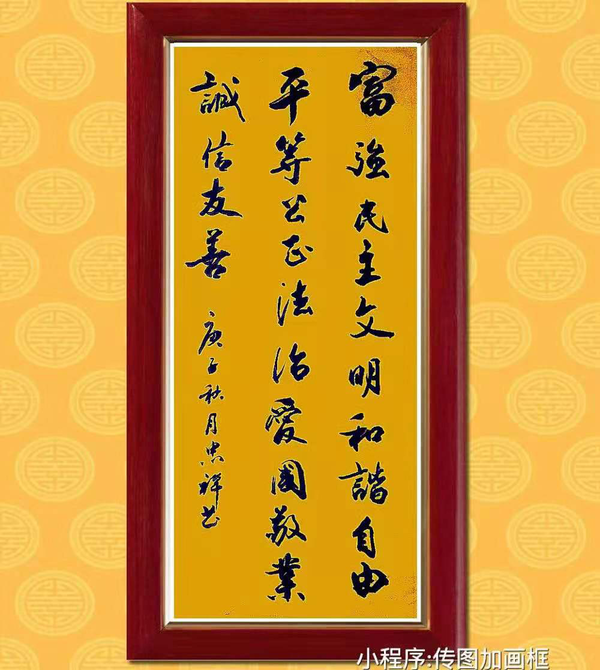 富強民主文明和諧自由
平等公正法治愛國敬業
誠信友善 庚子秋月忠祥书
小程序:传图加画框